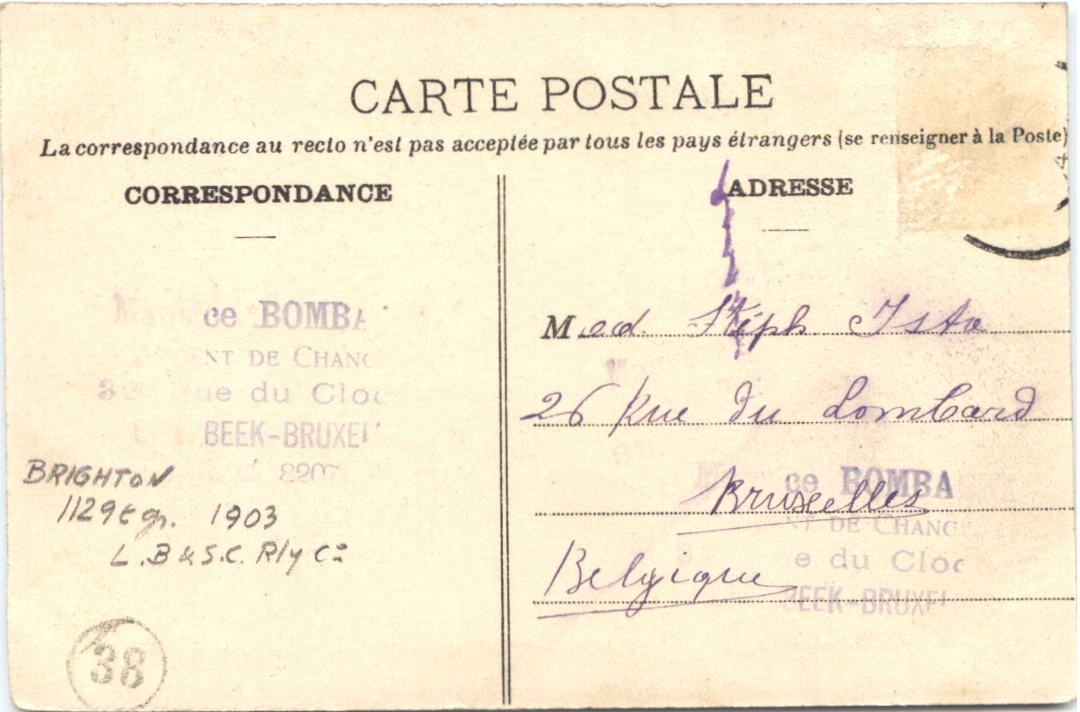 CARTE POSTALE
La correspondance au recto n'est pas acceptée par tous les pays étrangers (se renseigner à la Poste)
CORRESPONDANCE
ADRESSE
ce BOMBA
NT DE CHANG
ue du Cloc
BEEK-BRUXEL
8207
BRIGHTON
1129t gr. 1903
L.B & S.C. R/y Co
38
Mad. Stéph Ista
26 Rue du Lombard
Bruxelles
Belgique
ce BOMBA
NT DE CHANG
e du Cloc
BEEK-BRUXEL